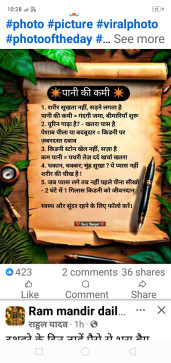 10:28
#photo #picture #viralphoto
#photooftheday #... See more
पानी की कमी
1. शरीर सूखता नहीं, सड़ने लगता है
पानी की कमी = गंदगी जमा, बीमारियाँ शुरू
2. यूरिन गाढ़ा है? - खतरा पास है
पेशाब पीला या बदबूदार = किडनी पर
ज़बरदस्त दबाव
3. किडनी स्टोन खेल नहीं, सज़ा है
कम पानी = पथरी तेज़ दर्द खार्चा खतरा
4. थकान, चक्कर, मुंह सूखा ? ये प्यास नहीं
शरीर की चीख है !
5. जब प्यास लगे तब नहीं पहले पीना सीखो
- हर 2 घंटे में 1 गिलास किडनी को जीवनदान
स्वस्थ और सुंदर रहने के लिए फॉलो करें।
423
2 comments 36 shares
Like
Comment
Share
Ram mandir dail...
राहुल यादव · 1h ·